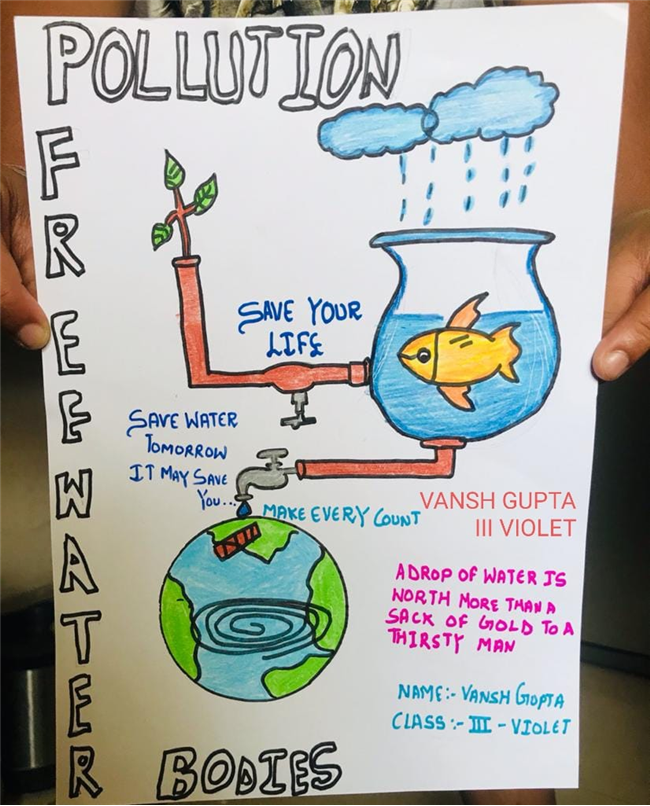 POLLUTION
FREE WATER
BODIES
SAVE YOUR
LIFE
SAVE WATER
TOMORROW
IT MAY SAVE
YOU...
MAKE EVERY COUNT
VANSH GUPTA
III VIOLET
A DROP OF WATER IS
WORTH MORE THAN A
SACK OF GOLD TO A
THIRSTY MAN
NAME:- VANSH GUPTA
CLASS:- III - VIOLET